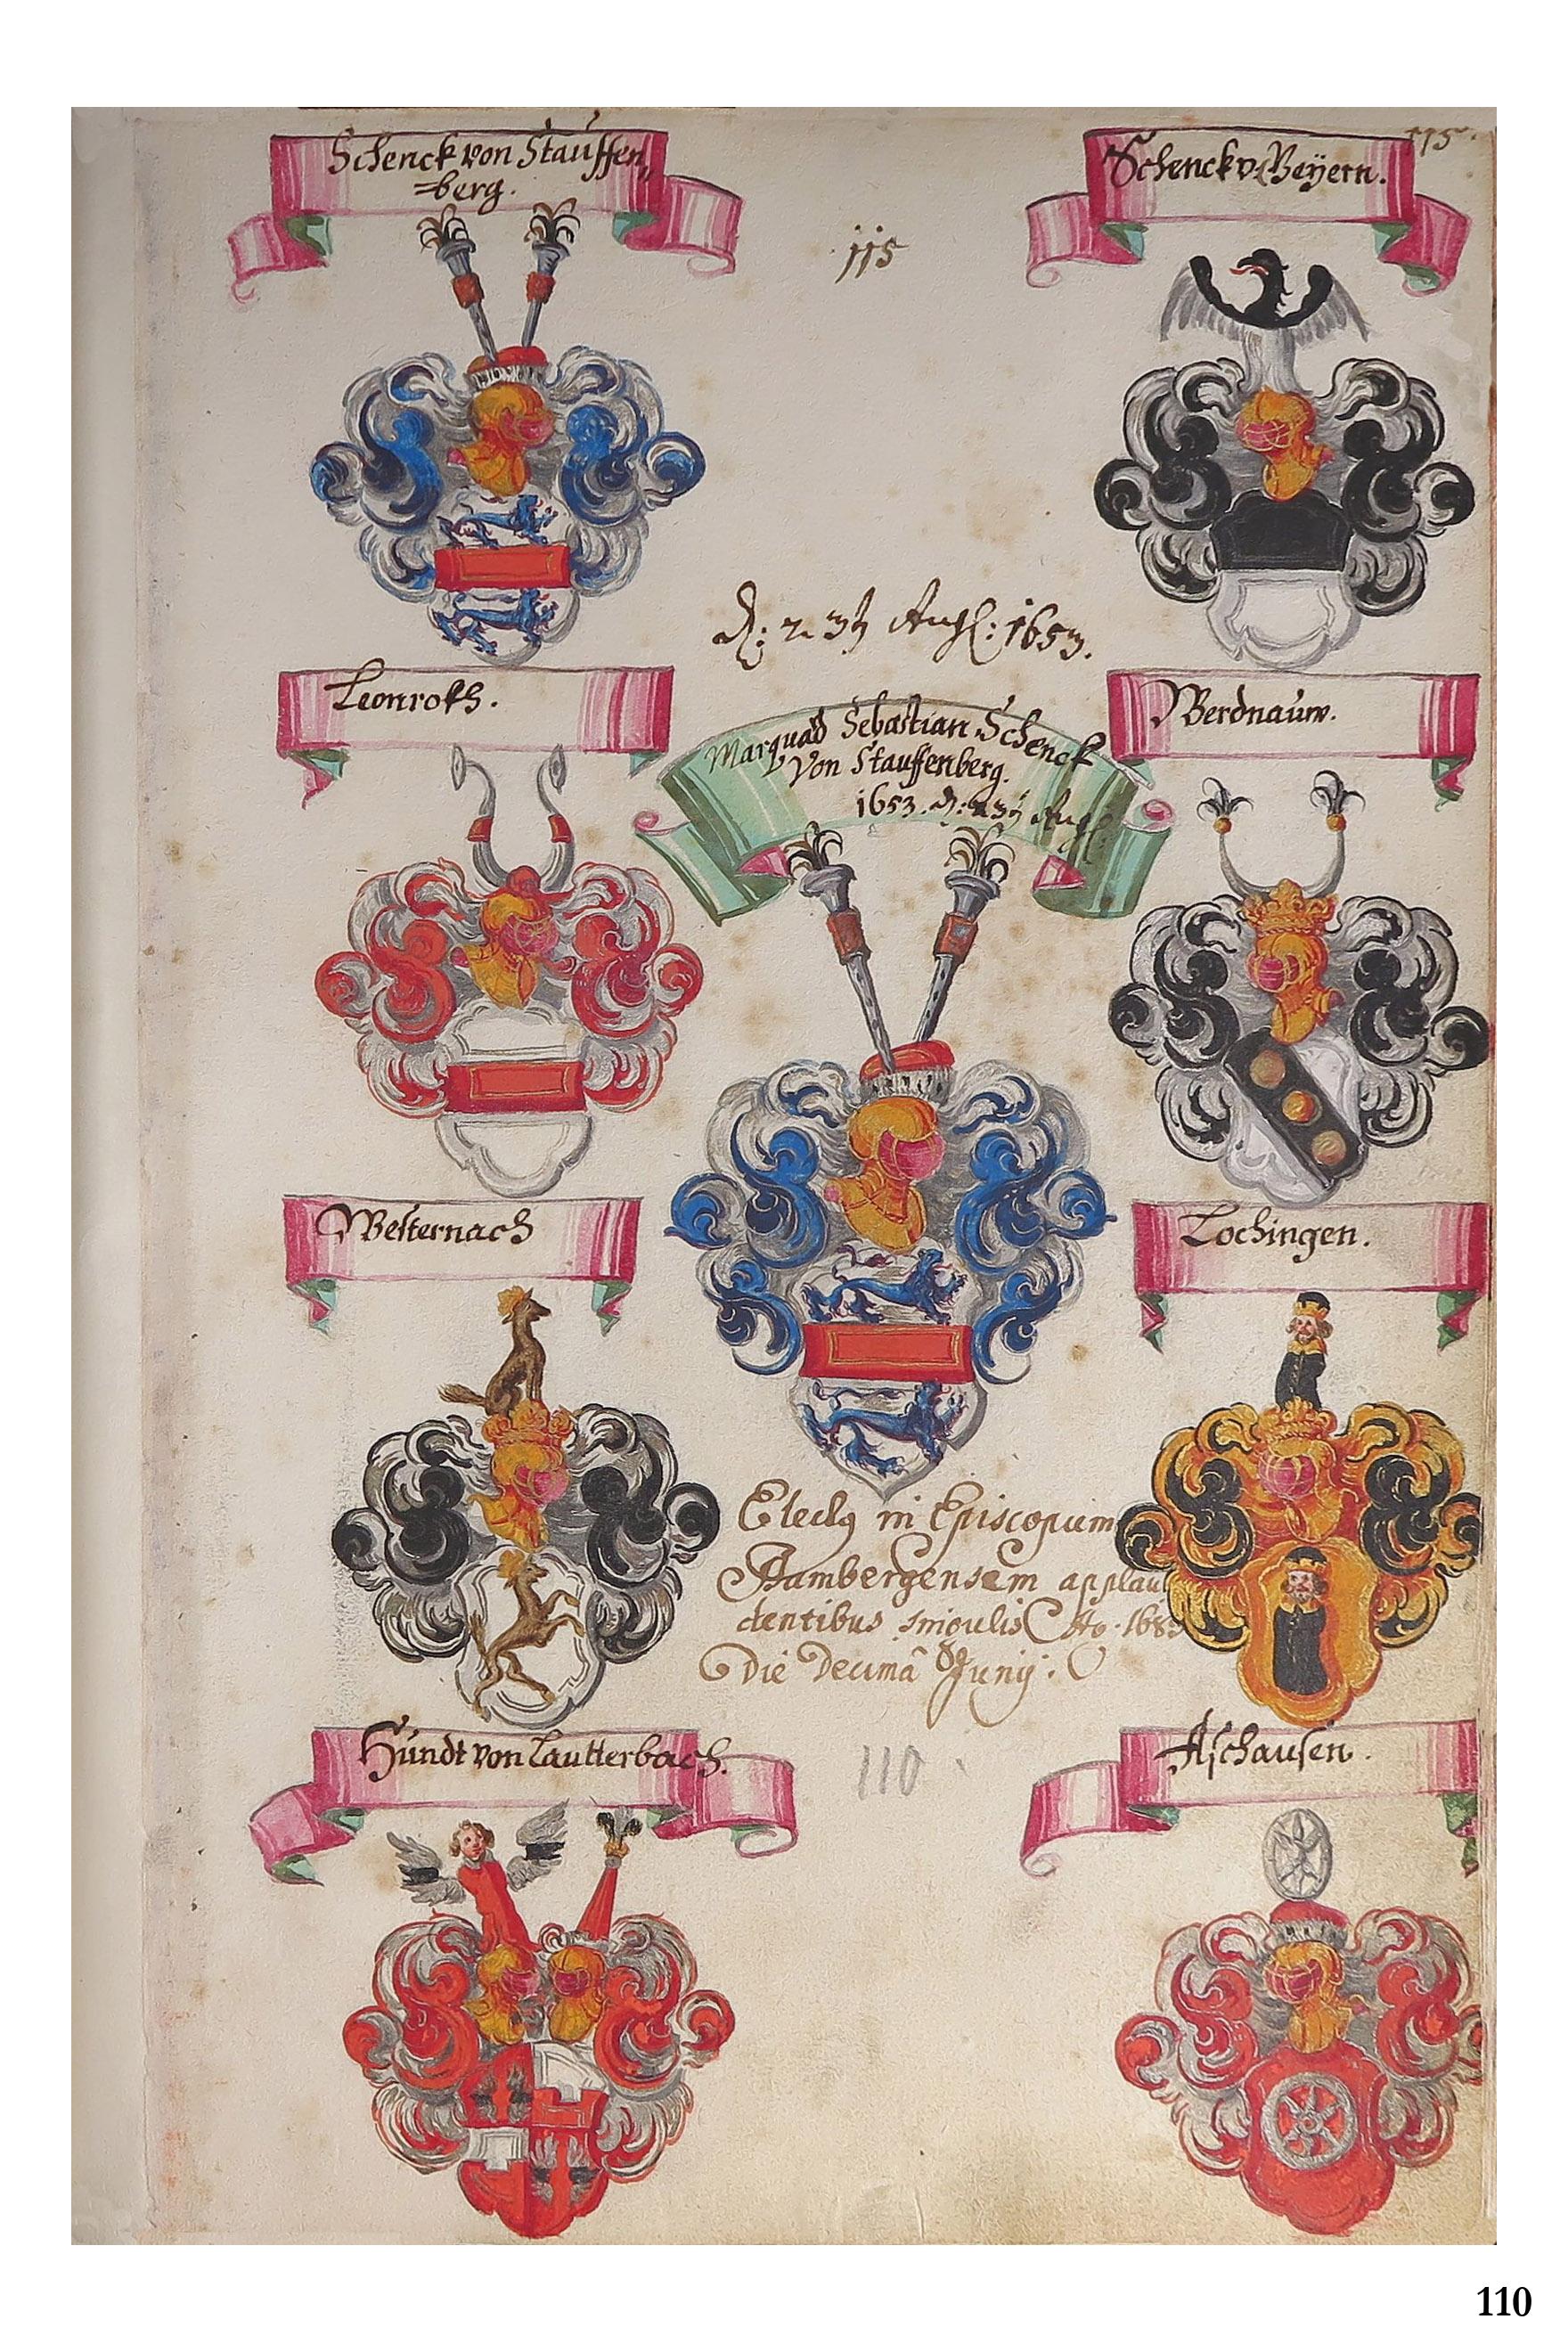 Schenck von Stauffen„
=berg.
Schenck v: Beÿern.
115.
115
Aug: 1653.
Leonroth.
Werdnauw.
Marquad Sebastian Schenck
Von Stauffenberg.
1653. d: 23 Aug:
Westernach
Lochingen.
Electus in Episcopum
Bambergensem applau
dentibus singulis Ao. 1683
Die Decimâ Junij.
Hundt von Lautterbach.
110
Aschausen.
110